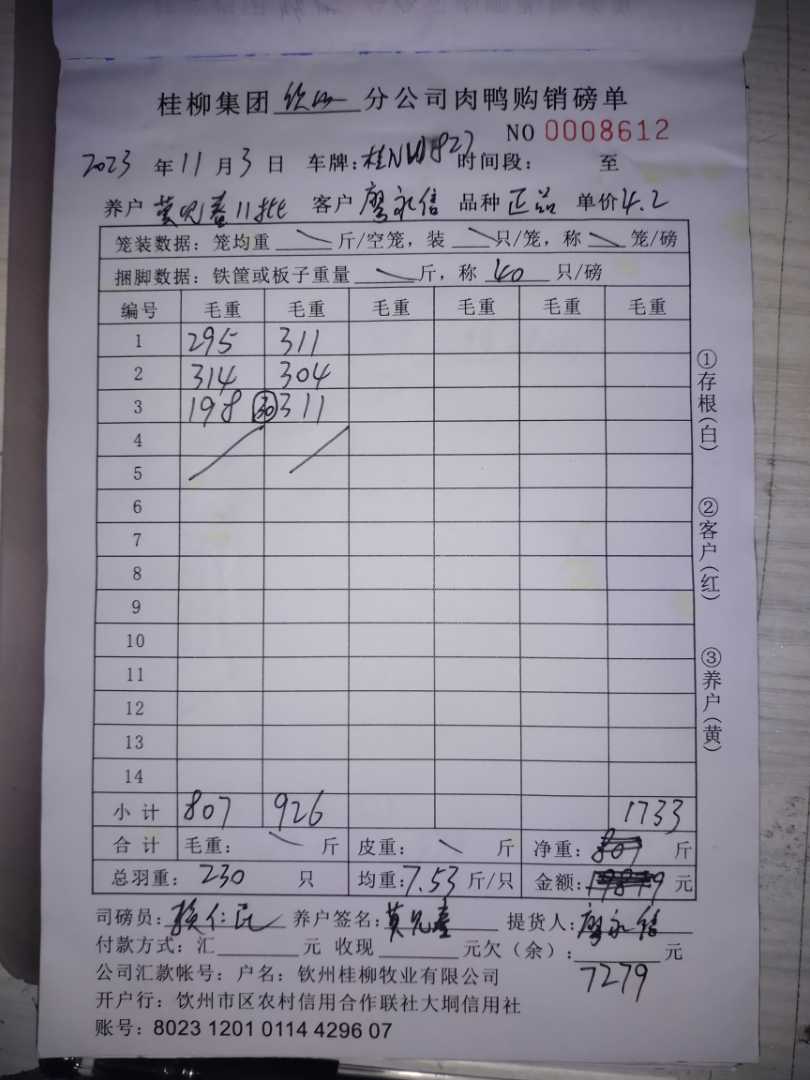 桂柳集团钦州分公司肉鸭购销磅单
NO 0008612
2023年11月3日 车牌:桂NW827 时间段: 至
养户 11批 客户 廖永信 品种 正品 单价4.2
笼装数据: 笼均重 斤/空笼, 装 只/笼, 称 笼/磅
捆脚数据: 铁筐或板子重量 斤, 称 40 只/磅
编号 毛重 毛重 毛重 毛重 毛重 毛重
1 295 311
2 314 304
3 198 30 311
4
5
6
7
8
9
10
11
12
13
14
小计 807 926 1733
合计 毛重: 斤 皮重: 斤 净重: 807 斤
总羽重: 230 只 均重: 7.53 斤/只 金额: 元
司磅员: 养户签名: 提货人: 廖永信
付款方式: 汇 元 收现 元欠(余): 元
7279
公司汇款帐号: 户名: 钦州桂柳牧业有限公司
开户行: 钦州市区农村信用合作联社大垌信用社
账号: 8023 1201 0114 4296 07
①存根(白)
②客户(红)
③养户(黄)